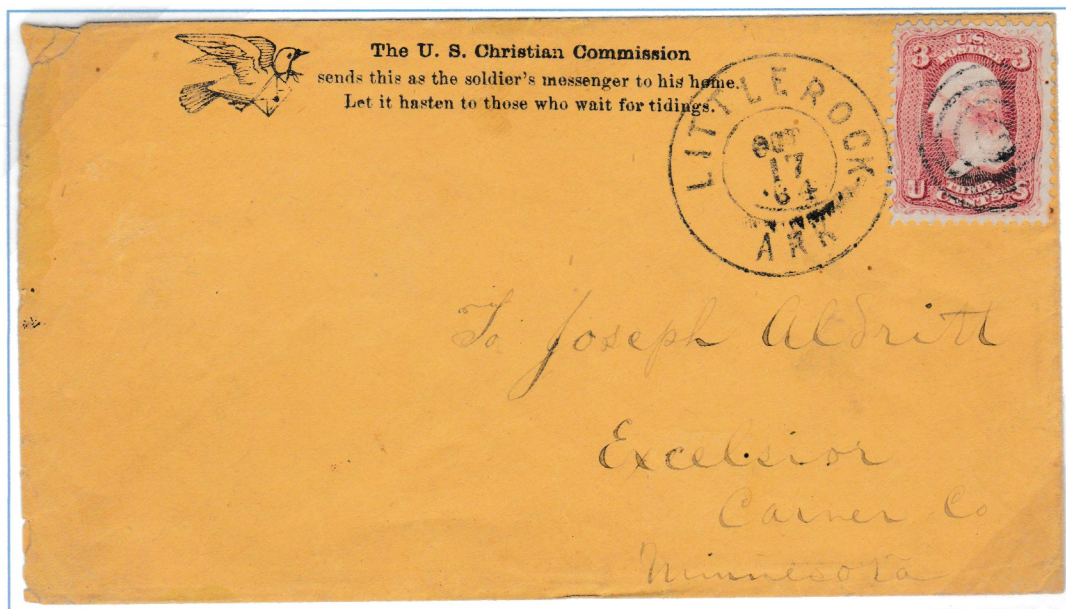 The U. S. Christian Commission
sends this as the soldier's messenger to his home.
Let it hasten to those who wait for tidings.
LITTLE ROCK
OCT
17
64
ARK
U.S.
POSTAGE
3 3
U S
CENTS
To Joseph Aldritt
Excelsior
Carver Co
Minnesota